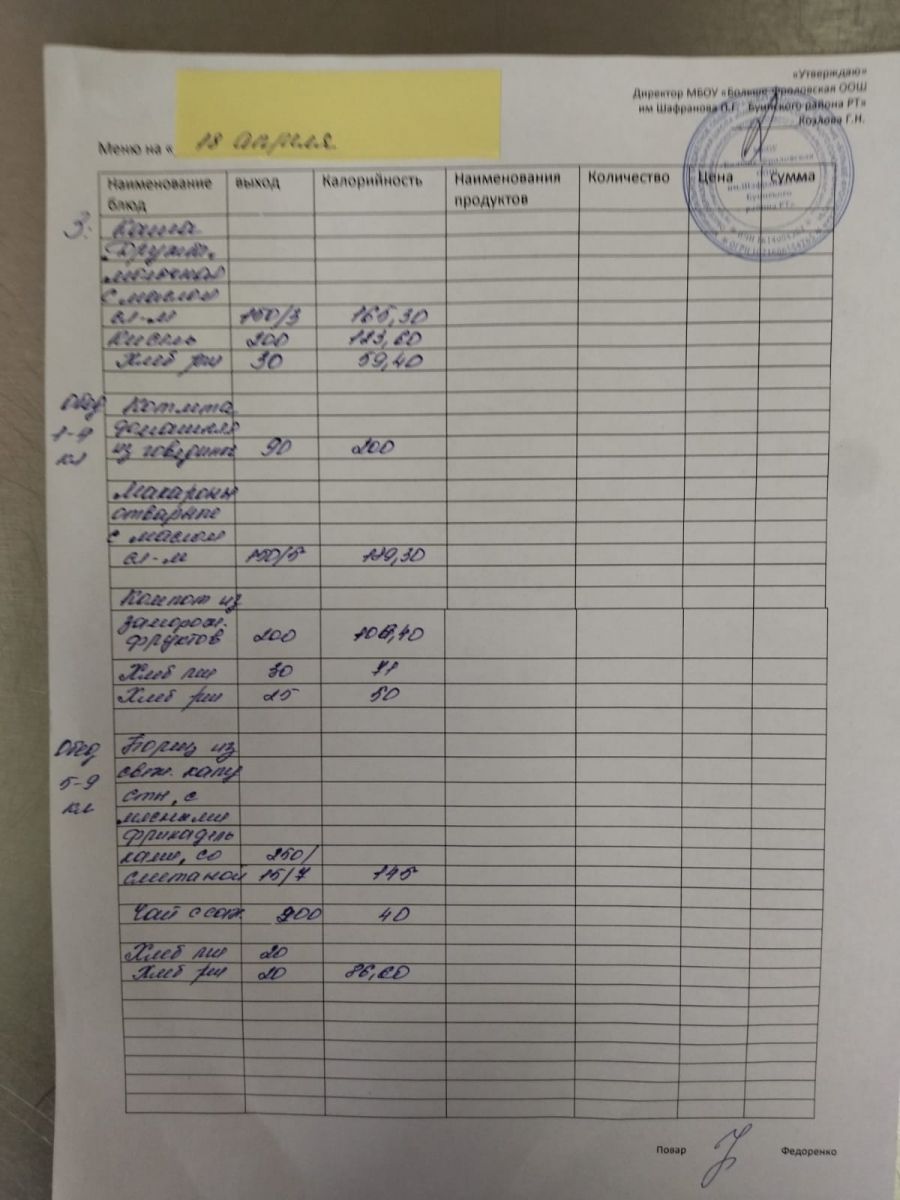 «Утверждаю»
Директор МБОУ «Больше-Фроловская ООШ
им Шафранова П.Г. Буинского района РТ»
Козлова Г.Н.
Меню на « 18 апреля
Наименование блюд выход Калорийность Наименования продуктов Количество Цена сумма
З: Каша
Дружба,
молочная
с маслом
сл-м 150/3 165,30
Кисель 200 123,60
Хлеб рж 30 59,40
Обед Котлета
1-4 домашняя
кл из говядины 90 200
Макароны
отварные
с маслом
сл-м 150/5 189,30
Компот из
заморож.
фруктов 200 108,40
Хлеб пш 30 71
Хлеб рж 25 50
Обед Борщ из
5-9 свеж. капу
кл стн, с
мясными
фрикадель
ками, со 250/
сметаной 15/7 145
Чай с сах. 200 40
Хлеб пш 20
Хлеб рж 20 86,60
Повар Федоренко